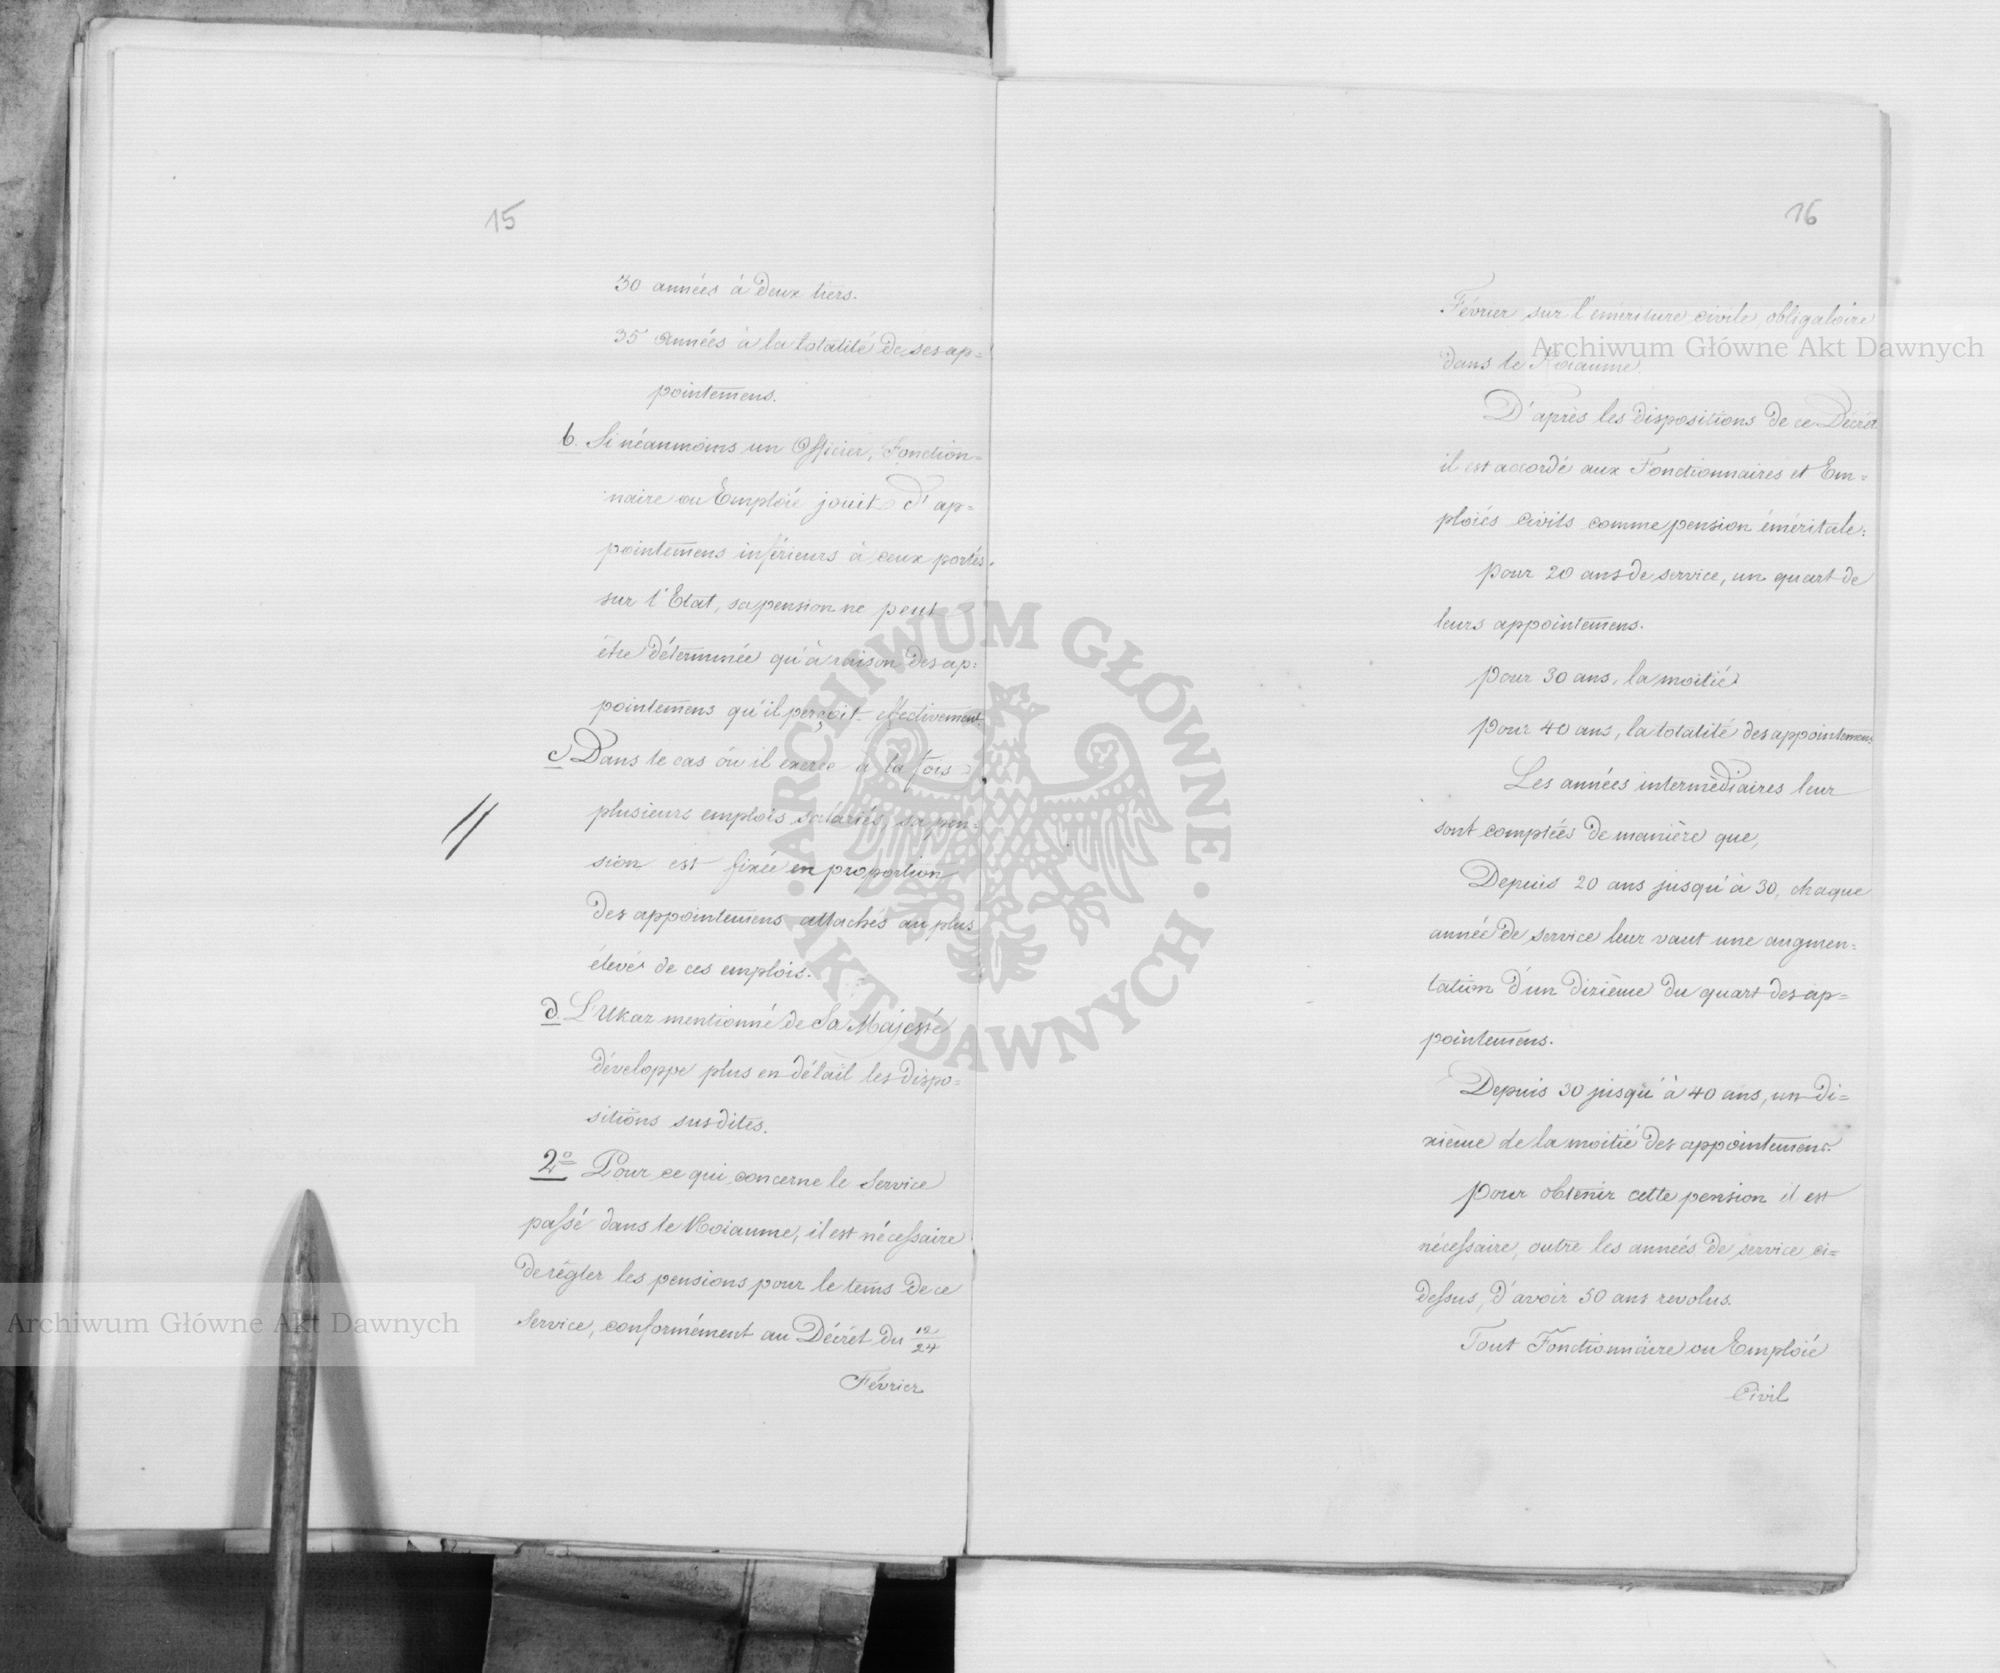 15
30 années à deux tiers.
35 années à la totalité de ses ap=
pointemens.
b. Si néanmoins un Officier, Fonction=
naire ou Emploié jouit d'ap=
pointemens inférieurs à ceux portés
sur l'Etat, sa pension ne peut
être déterminée qu'à raison des ap=
pointemens qu'il perçoit effectivement.
c. Dans le cas où il exerce à la fois
plusieurs emplois salariés, sa pen=
sion est fixée en proportion
des appointemens attachés au plus
élevé de ces emplois.
d. L'Ukaz mentionné de Sa Majesté
développe plus en détail les dispo=
sitions susdites.
2º Pour ce qui concerne le Service
passé dans le Roiaume, il est nécessaire
de régler les pensions pour le tems de ce
Service, conformément au Décrét du 12/24
Février
16
Février sur l'emériture civile, obligatoire
dans le Roiaume.
D'après les dispositions de ce Décrét
il est accordé aux Fonctionnaires et Em=
ploiés civils comme pension éméritale:
pour 20 ans de service, un quart de
leurs appointemens.
pour 30 ans, la moitié
pour 40 ans, la totalité des appointemens
Les années intermédiaires leur
sont comptées de manière que,
Depuis 20 ans jusqu'à 30, chaque
année de service leur vaut une augmen=
tation d'un dixième du quart des ap=
pointemens.
Depuis 30 jusqu'à 40 ans, un di=
xième de la moitié des appointemens.
pour obtenir cette pension il est
nécessaire, outre les années de service ci=
dessus, d'avoir 50 ans revolus.
Tout Fonctionnaire ou Emploié
Civil
ARCHIWUM GŁÓWNE · AKT DAWNYCH ·
Archiwum Główne Akt Dawnych
Archiwum Główne Akt Dawnych